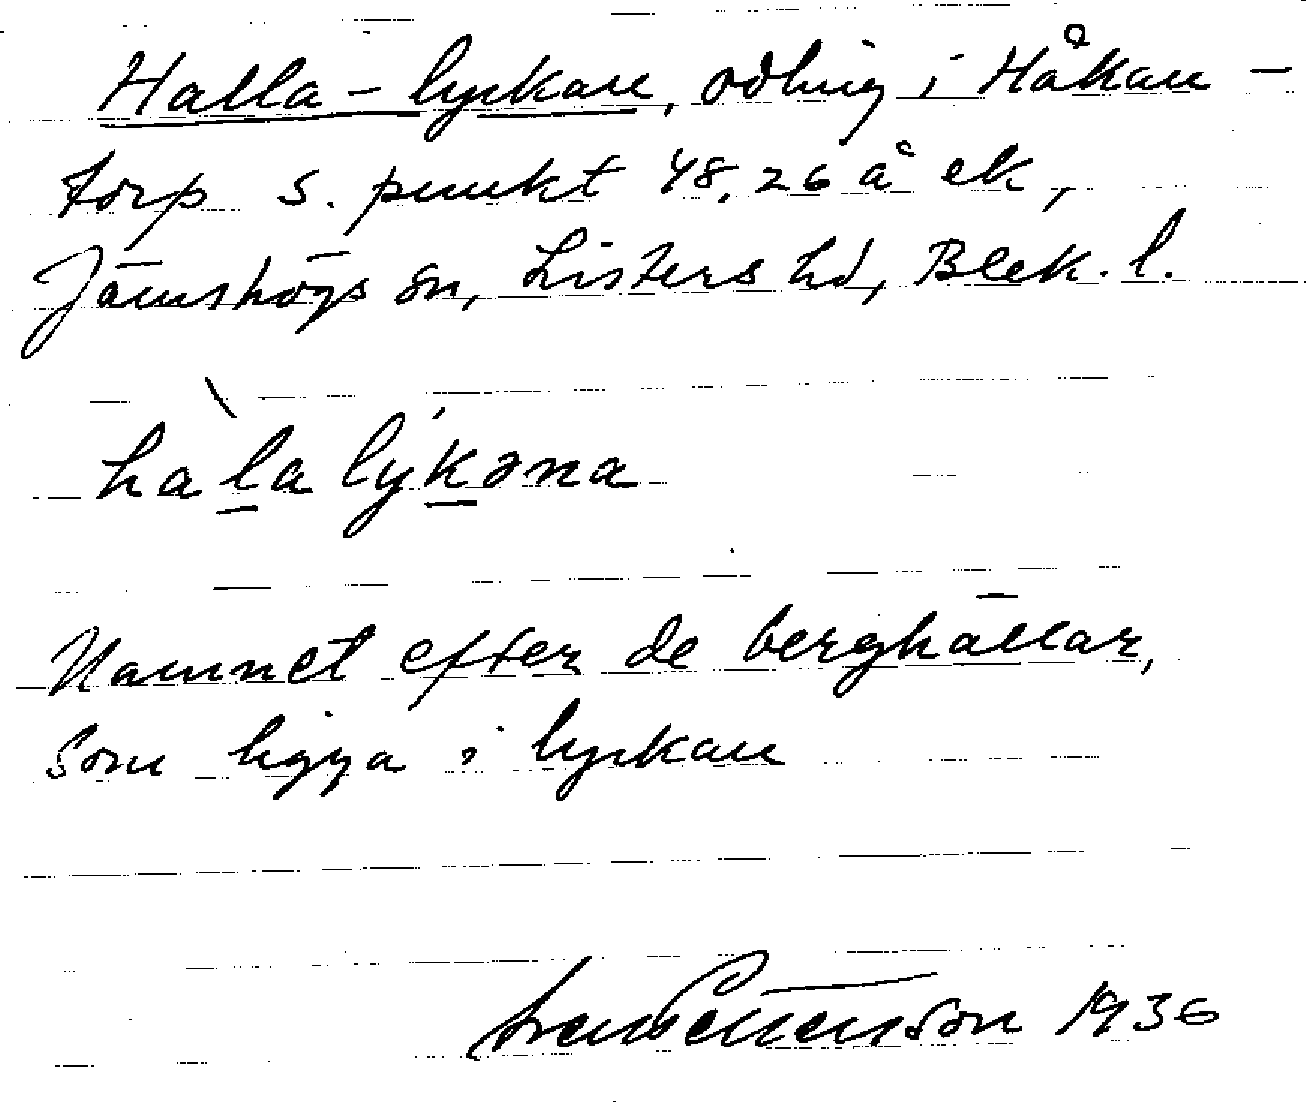 Halla-lyckan, odling i Håkan-
torp S. punkt 48.26 å ek,
Jämshögs sn, Listers hd, Blek. l.
hàla lýkəna
Namnet efter de berghällar,
som ligga i lyckan
1936